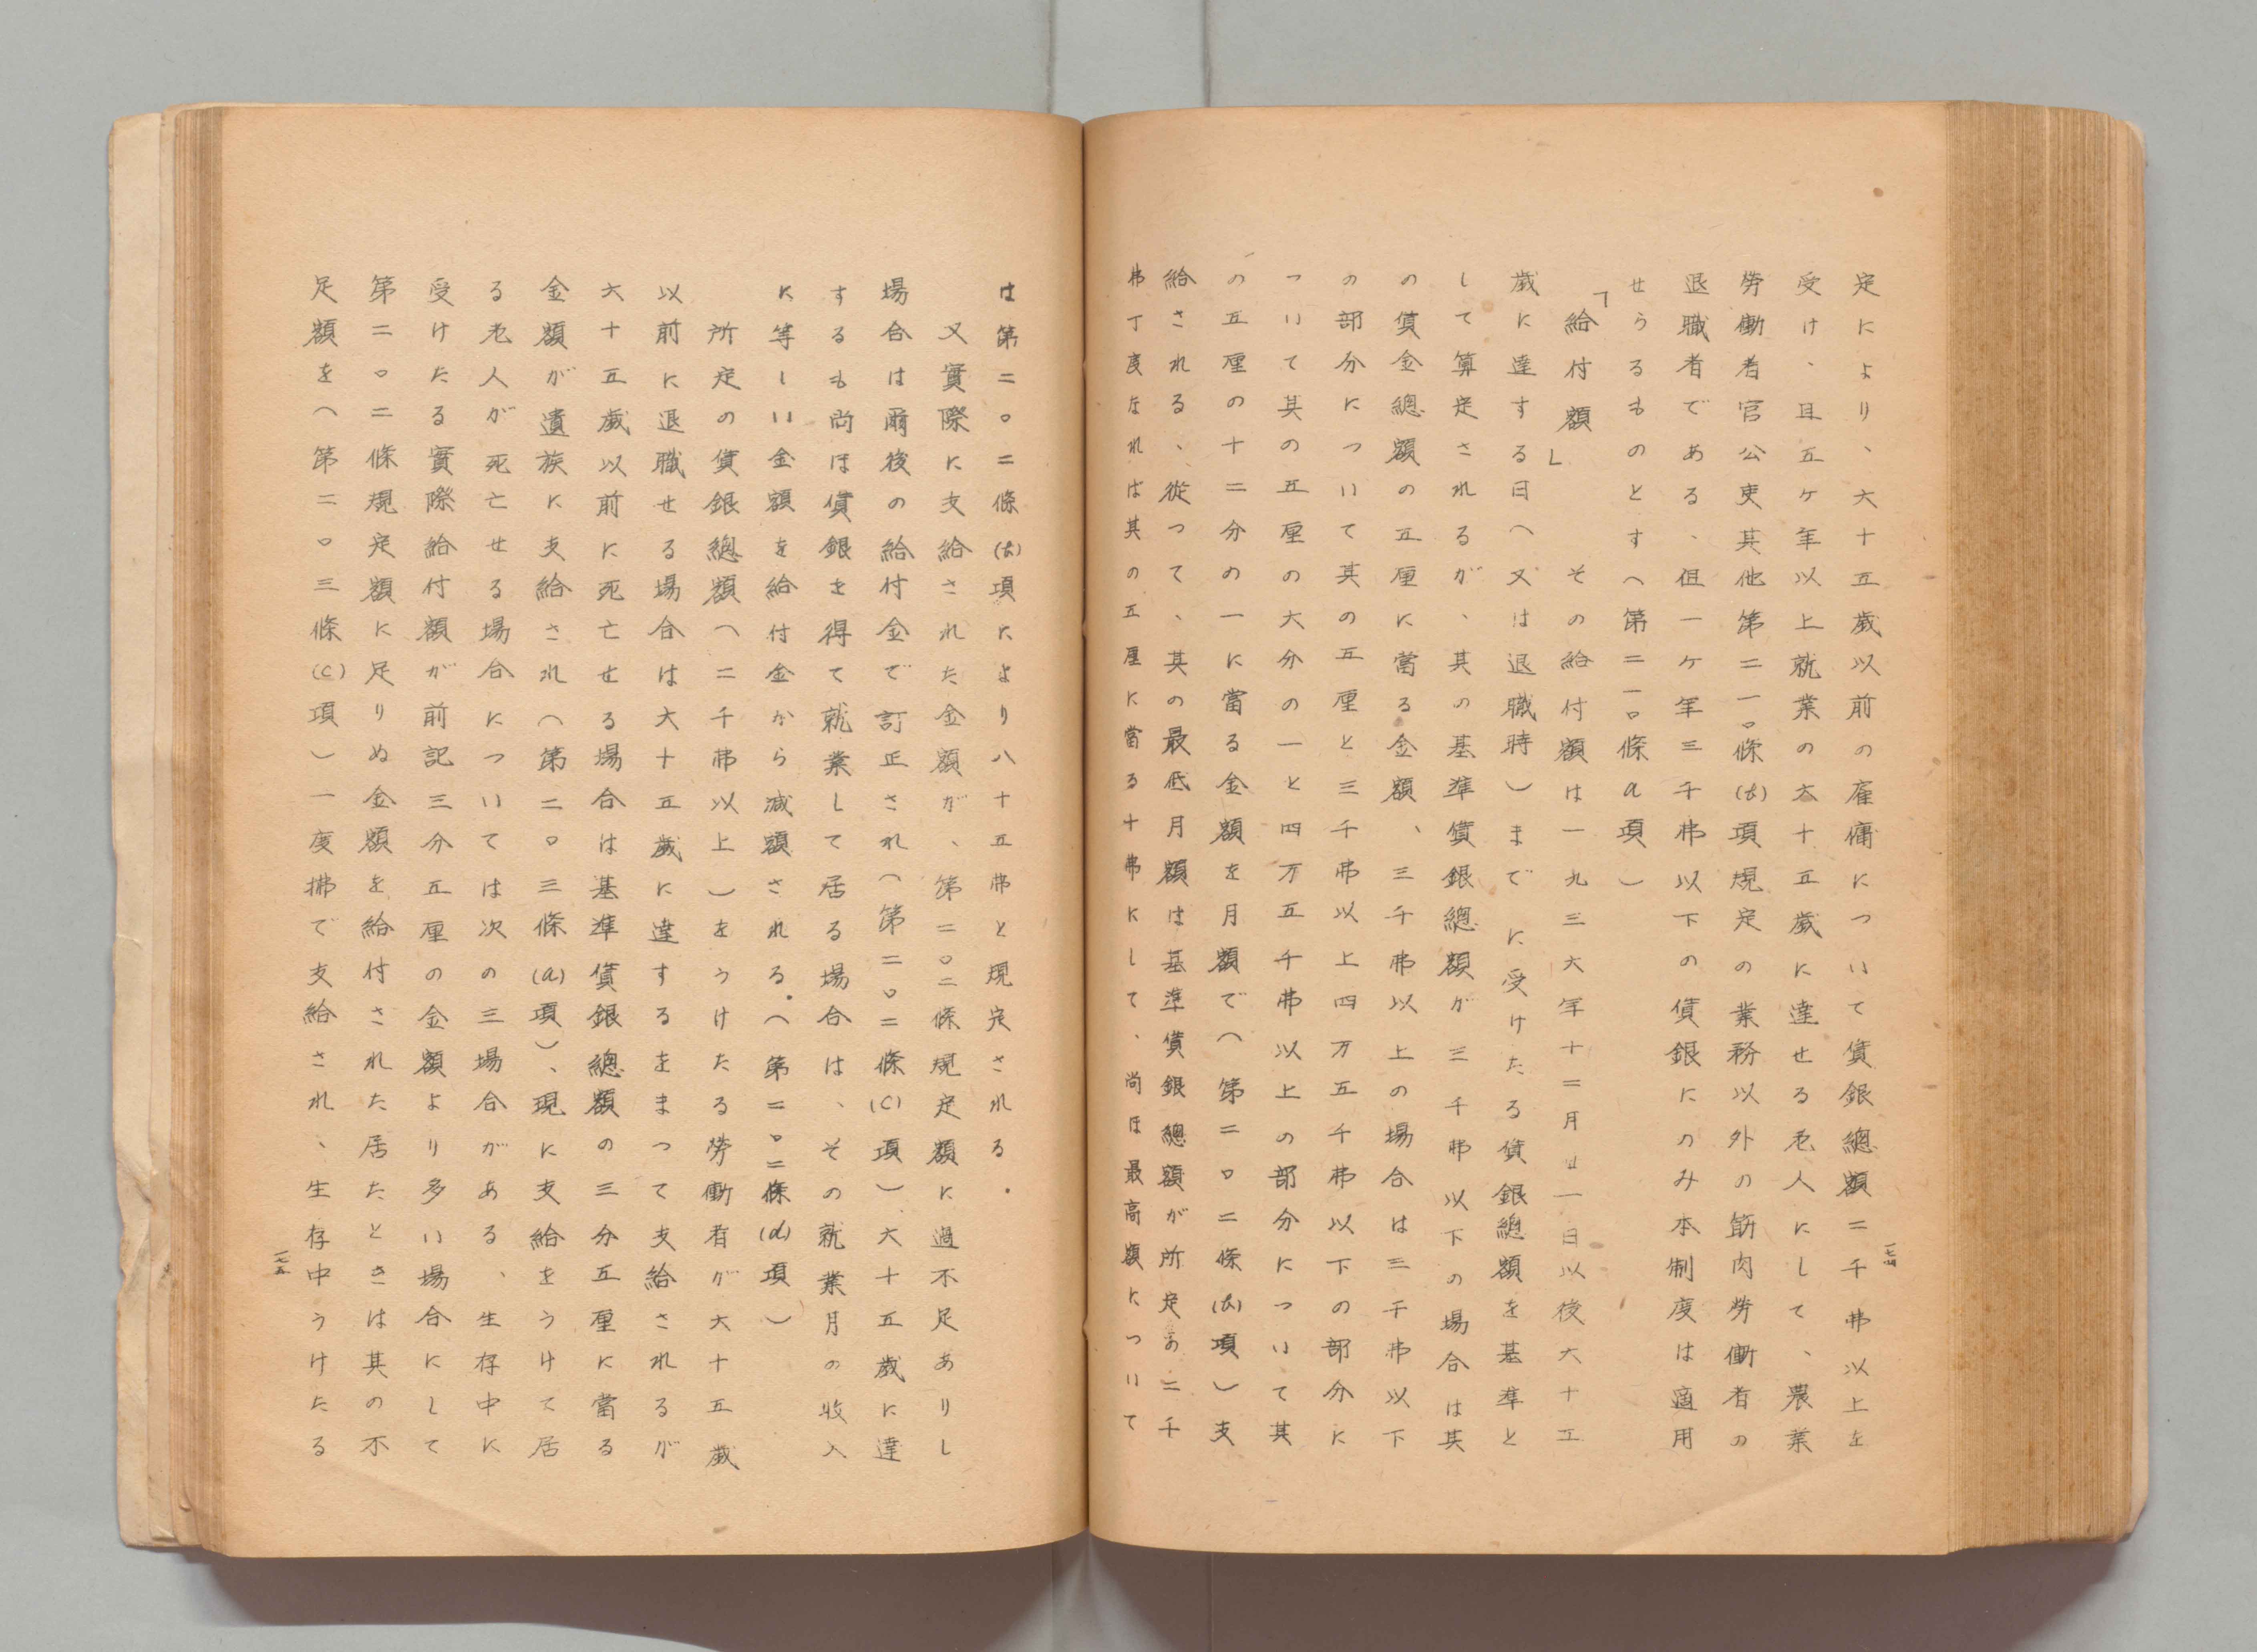 定により、六十五歳以前の雇傭について賃銀總額二千弗以上を
受け、且五ケ年以上就業の六十五歳に達せる老人にして、農業
勞働者官公吏其他第二一〇條(b)項規定の業務以外の筋肉勞働者の
退職者である、但一ケ年三千弗以下の賃銀にのみ本制度は適用
せらるものとす（第二一〇條a項）
「給付額」　その給付額は一九三六年十二月卅一日以後六十五
歳に達する日（又は退職時）までに受けたる賃銀總額を基準と
して算定されるが、其の基準賃銀總額が三千弗以下の場合は其
の賃金總額の五厘に當る金額、三千弗以上の場合は三千弗以下
の部分について其の五厘と三千弗以上四万五千弗以下の部分に
ついて其の五厘の六分の一と四万五千弗以上の部分について其
の五厘の十二分の一に當る金額を月額で（第二〇二條(b)項）支
給される、從つて、其の最低月額は基準賃銀總額が所定の二千
弗丁度なれば其の五厘に當る十弗にして、尚ほ最高額について
一七四
は第二〇二條(b)項により八十五弗と規定される．
又實際に支給された金額が、第二〇二條規定額に過不足ありし
場合は爾後の給付金で訂正され（第二〇二條(c)項）六十五歳に達
するも尚ほ賃銀を得て就業して居る場合は、その就業月の收入
に等しい金額を給付金から減額される．（第二〇二條(d)項）
所定の賃銀總額（二千弗以上）をうけたる勞働者が六十五歳
以前に退職せる場合は六十五歳に達するをまつて支給されるが
六十五歳以前に死亡せる場合は基準賃銀總額の三分五厘に當る
金額が遺族に支給され（第二〇三條(a)項）、現に支給をうけて居
る老人が死亡せる場合については次の三場合がある、生存中に
受けたる實際給付額が前記三分五厘の金額より多い場合にして
第二〇二條規定額に足りぬ金額を給付された居たときは其の不
足額を（第二〇三條(c)項）一度拂で支給され、生存中うけたる
一七五